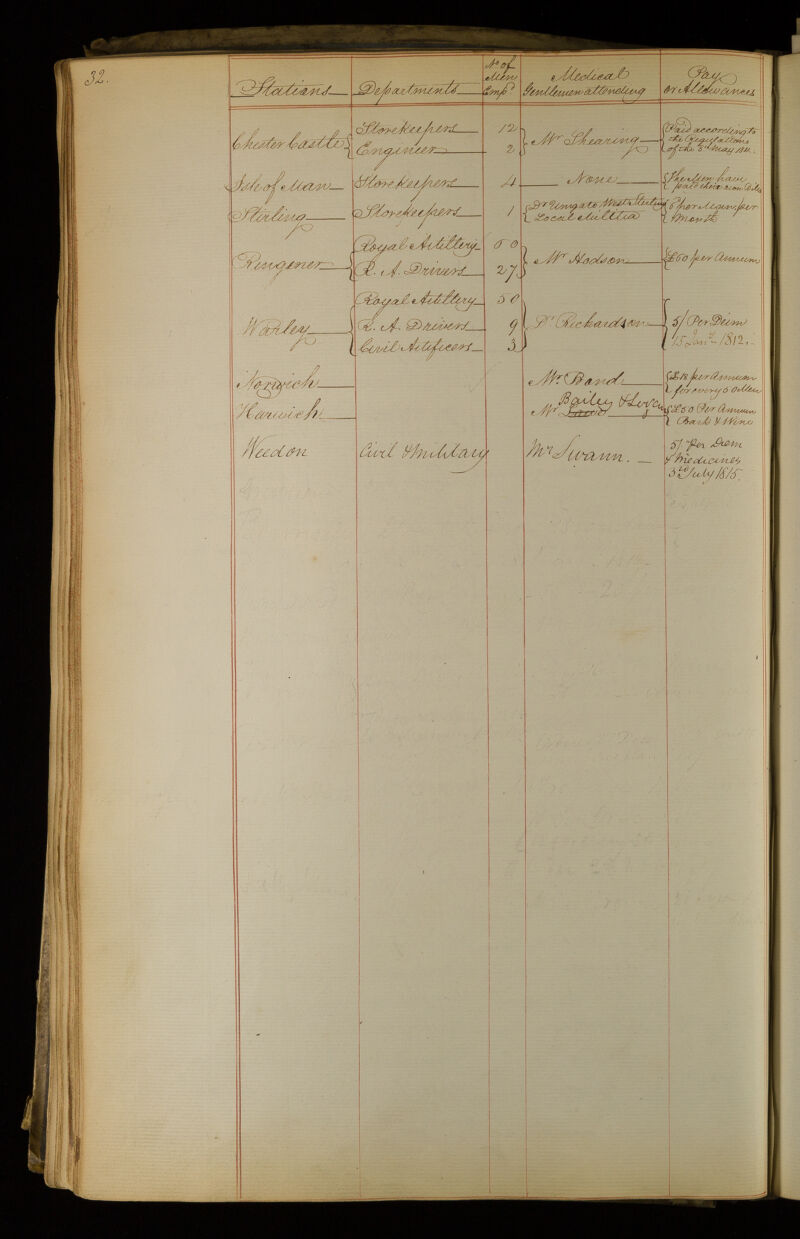 32.
Stations Departments No. of Men Emp.d Medical Gentlemen attending Pay or Allowances
Chester Castle Storekeepers 12 Mr Shearing Paid according to the Regulations of the 3d May 1811.
Engineer 2
Isle of Man Storekeepers 4 None The Men have paid their own Bills
Stirling Storekeepers 1 Dr Ungato West Stirling Local Militia per Man per Month
Ringmer Royal Artillery 60 Mr Hodson £60 per Annum
R. A. Drivers 27
Warley Royal Artillery 50 Dr Richardson 5/ Per Diem 15 Jany 1812.
R. A. Drivers 9
Civil Artificers 3
Norwich Mr Band £18 per Annum for every 6 Men
Harwich Mr Bailey & £50 Per Annum Bark & Wine
Weedon Civil & Military Mr Swann. 5/ Per Diem & Medicines 3d July 1815.